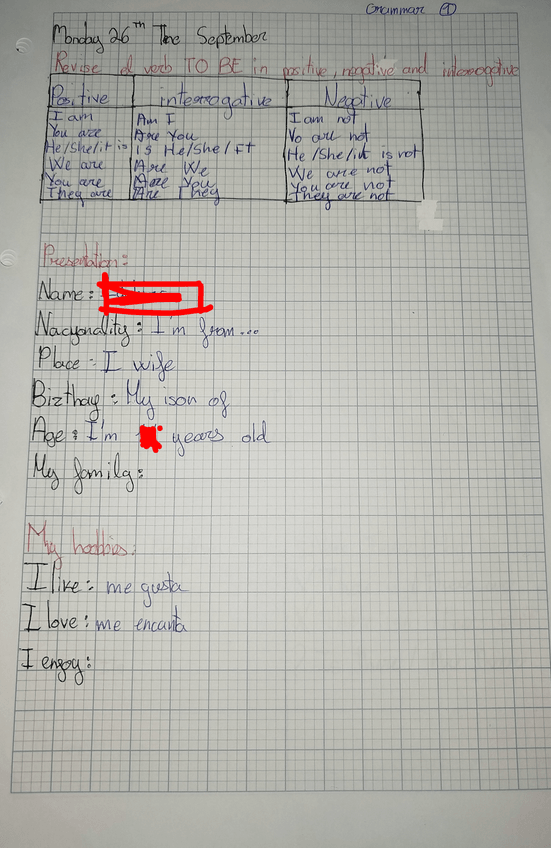 Grammar 1
Monday 26th The September
Revise el verb TO BE in positive, negative and interrogative
Positive interrogative Negative
I am Am I I am not
You are Are You Yo are not
He/She/it is is He/She/It He/She/it is not
We are Are We We are not
You are Are You You are not
They are Are They They are not
Presentation:
Name:
Nacyonality: I'm from...
Place: I wife
Birthay: My ison of
Age: I'm years old
My family:
My hoobies:
I like: me gusta
I love: me encanta
I engoy: